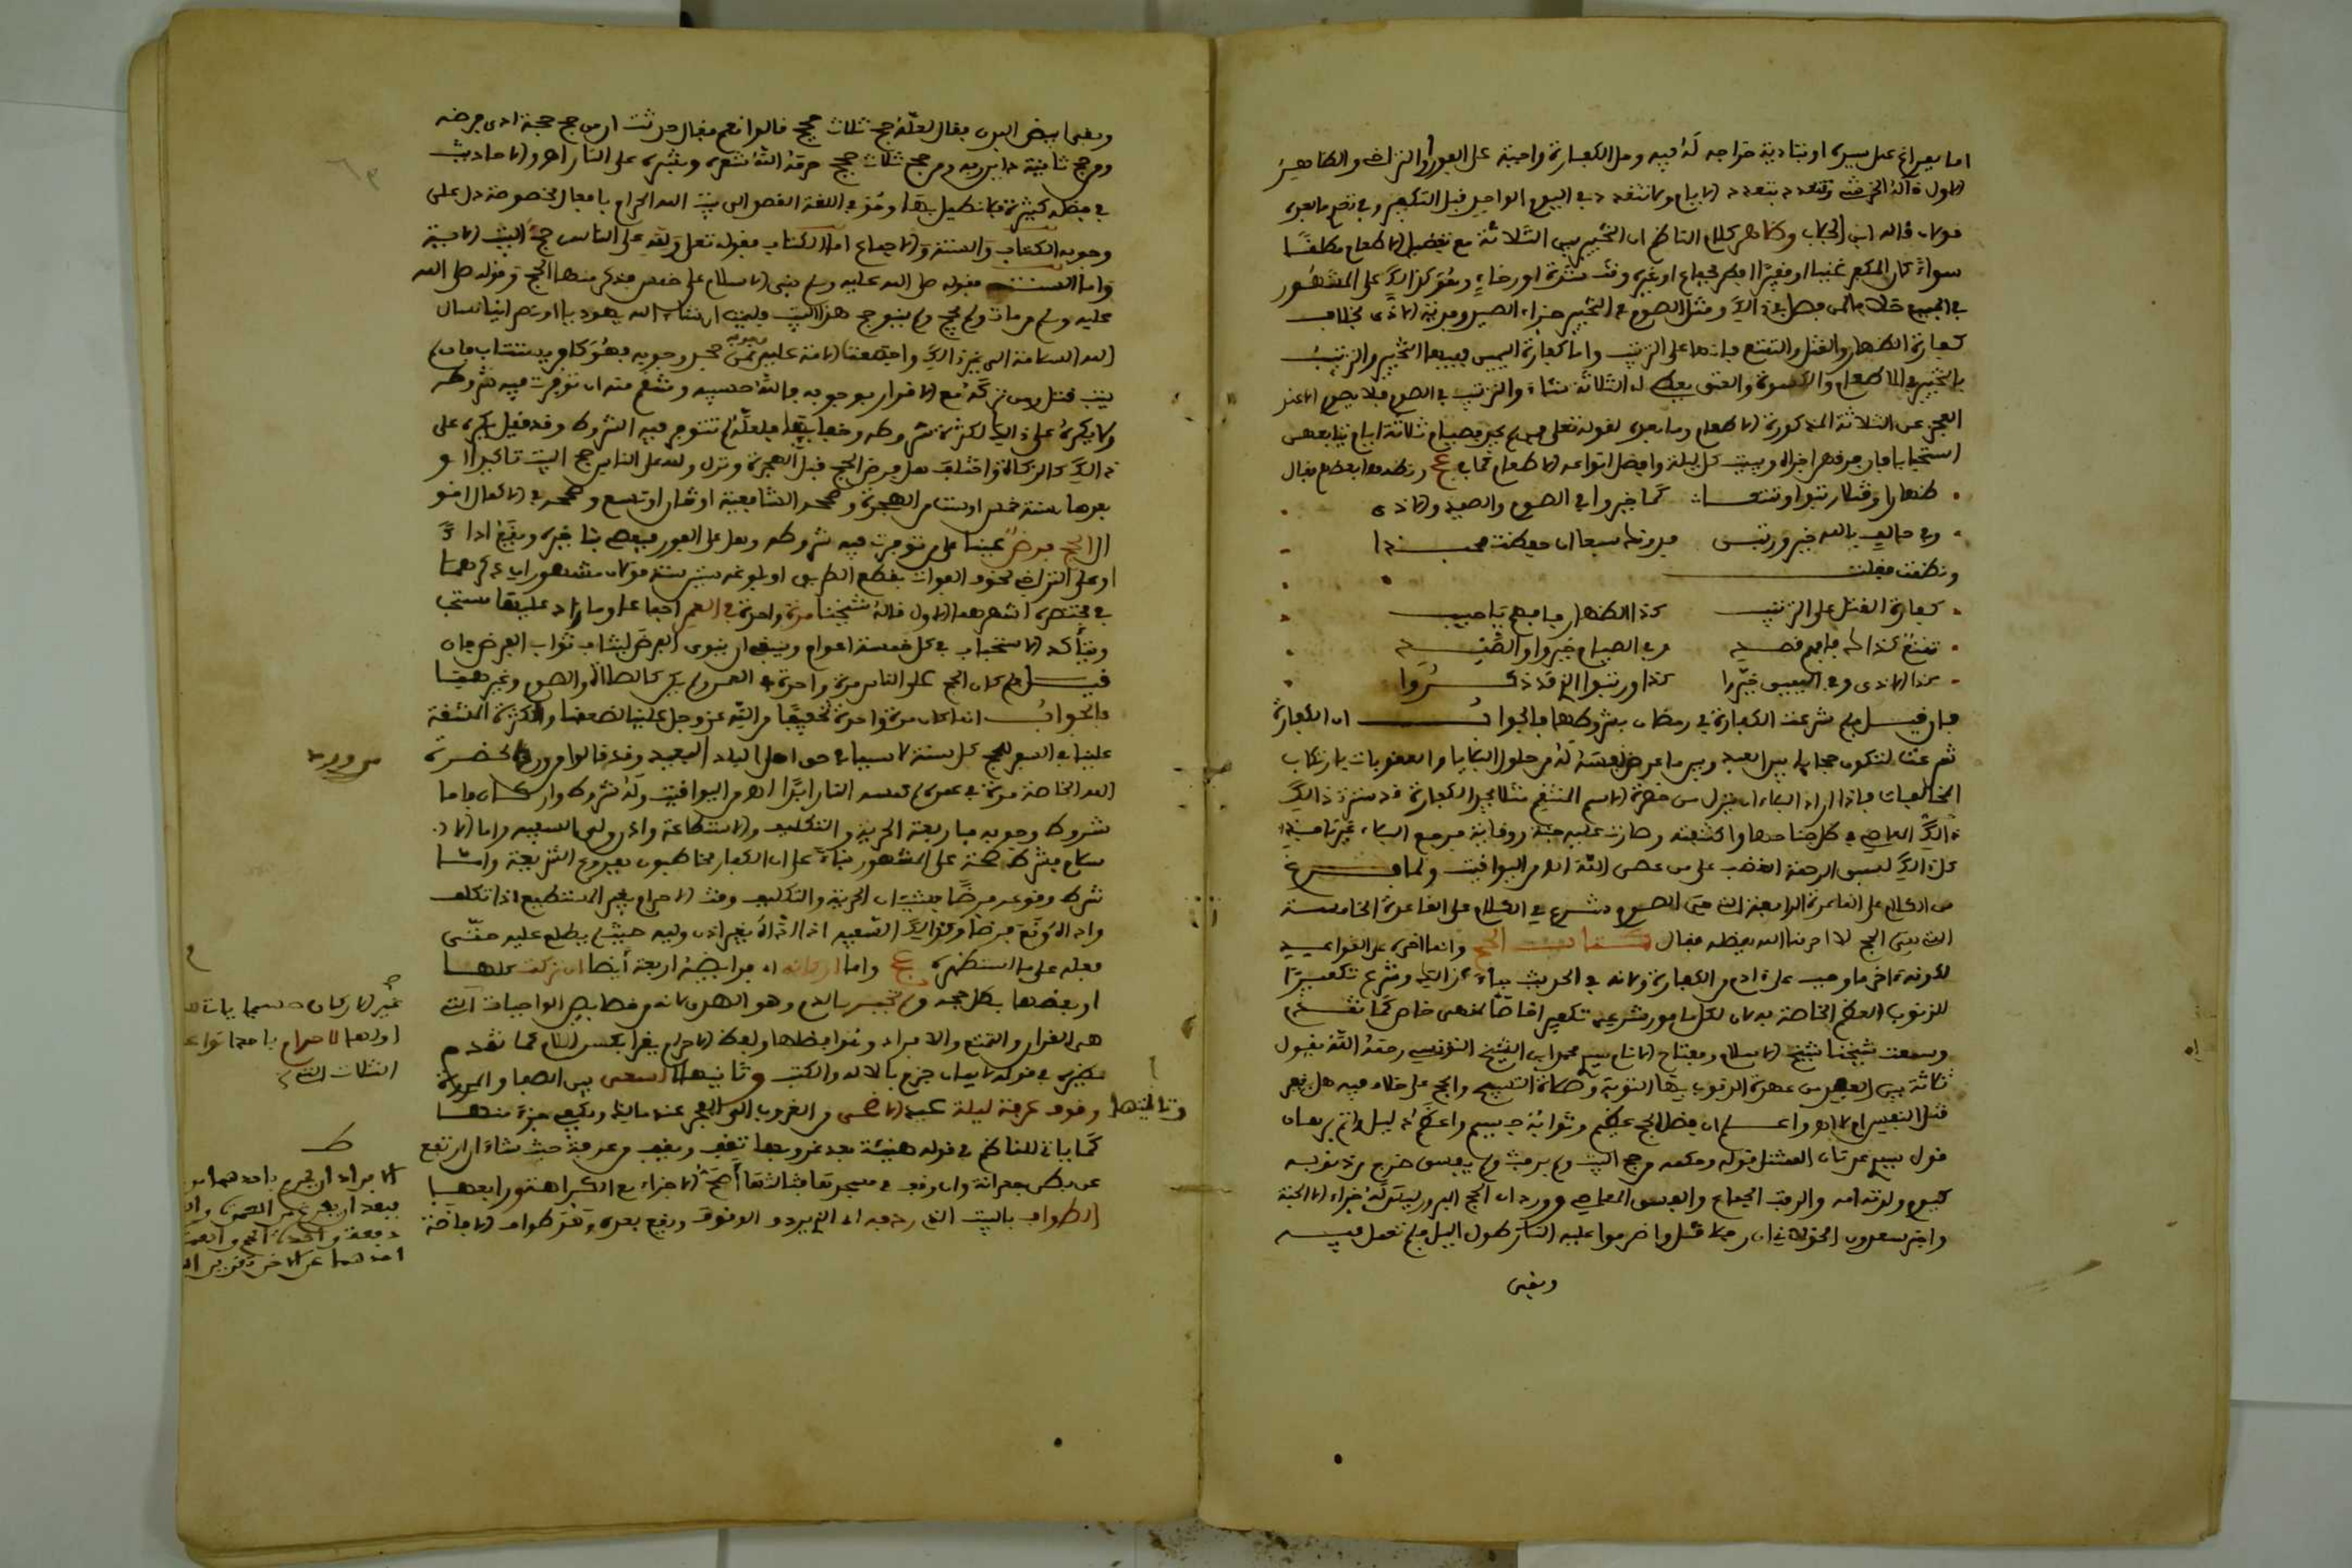 اما بفراغ عمل يسيره او بتأدية خراجه له فيه وهل الكفارة واجبة على الفور أو التراخي والظاهر
الأول قاله الخرشي وتتعدد بتعدد الأيام ولا تتعدد في اليوم الواحد قبل التكفير وفي تعددها بعده
قولان قاله ابن الحاجب وظاهر كلام الناظم ان التخيير بين الثلاثة مع تفضيل الاطعام مطلقا
سواء كان المكفر غنيا او فقيرا افطر بجماع او غيره وقت شدة او رخاء وهو كذلك على المشهور
في الجميع خلافا لمن فصل في ذلك ومثل الصوم في التخيير جزاء الصيد وفدية الاذى بخلاف
كفارة الظهار والقتل والتمتع فانها على الترتيب واما كفارة اليمين ففيها التخيير والترتيب
فالتخيير في الاطعام والكسوة والعتق يفعل اي الثلاثة شاء والترتيب في الصوم فلا يصوم الا عند
العجز عن الثلاثة المذكورة الاطعام وما بعده لقوله تعلى فمن لم يجد فصيام ثلاثة ايام يتابعهن
استحبابا فان فرقهن اجزاه وبيت كل ليلة وافضل انواعه الاطعام كما في عج ونظمها بعضهم فقال
ظهارا وقتلا رتبوا وتمتعا كما خيروا في الصوم والصيد والاذى
وفي حالف بالله خير ورتبن فدونك سبعا ان حفظت فحبذا
ونظمت فقلت
كفارة القتل على الترتيب كذا الظهار فافهم يا حبيب
تمتع كذاك فافهم قصدي وفي الصيام خيروا والصيد
كذا الاذى وفي اليمين خيرا كذا ورتبوا الذي قد ذكروا
فان قيل لم شرعت الكفارة في رمضان بشروطها فالجواب ان الكفارة
شرعت لتكون حجابا بين العبد وبين ما عرض نفسه له من حلول البلايا والعقوبات بارتكاب
المخالفات فاذا اراد البلاء ان ينزل من حضرة الاسم المنتقم مثلا يجد الكفارة قد سترت ذلك
ذلك العاصي في ظل جناحها واكتنفته وصارت عليه جنة ووقاية فيرجع البلاء غير نافذ
كل ذلك لسبق الرحمة الغضب على من عصى الله اه من اليواقيت ولما فرغ
من الكلام على القاعدة الرابعة التي هي الصوم شرع في الكلام على القاعدة الخامسة
التي هي الحج لا احرمنا الله بفضله فقال كتاب الحج وانما اخره على القواعد
لكونه ءاخر ما وجب على ءادم من الكفارة ولانه في الحديث جاء كذلك وشرع تكفيرا
للذنوب العظام الخاصة به لان لكل مامور شرعي تكفير خاصا لمعنى خاص كما تقدم
وسمعت شيخنا شيخ الاسلام ومفتاح الانام سيدي محمد ابن الشيخ التونسي رحمه الله يقول
ثلاثة يبقى العبد من عهدة الذنوب بها التوبة وصلاة التسبيح والحج على خلاف فيه هل يكفر
قتل النفس ام لا اه واعلم ان فضل الحج عظيم وثوابه جسيم واعظم دليل واتم برهان
قول سيد عدنان الممتثل قوله وحكمه من حج البيت ولم يرفث ولم يفسق خرج من ذنوبه
كيوم ولدته امه والرفث الجماع والفسق المعاصي وورد ان الحج المبرور ليس له جزاء الا الجنة
واخبر سعدون الخولاني ان رجلا قتل واضرموا عليه النار طول الليل فلم تعمل فيه
وبقي
وبقي ابيض البدن فقال لعله حج ثلاث حجج قالوا نعم فقال حدثت ان من حج حجة ادى فرضه
ومن حج ثانية داين ربه ومن حج ثلاث حجج حرم الله شعره وبشره على النار اه والاحاديث
في فضله كثيرة فلا نطيل بها وهو في اللغة القصد الى بيت الله الحرام بافعال مخصوصة دل على
وجوبه الكتاب والسنة والاجماع اما الكتاب فقوله تعلى ولله على الناس حج البيت الاية
واما السنة فقوله صلى الله عليه وسلم بني الاسلام على خمس فذكر منها الحج وقوله صلى الله
عليه وسلم من مات ولم يحج ولم ينو حج هذا البيت فليمت ان شاء الله يهوديا او نصرانيا نسال
الله السلامة الى غير ذلك واجتمعت الامة عليه فمن جحد وجوبه فهو كافر يستتاب فان لم
يتب قتل ومن تركه مع الاقرار بوجوبه فالله حسيبه وتشنيع منه ان توفرت فيه شروطه
ولا يكره على ذلك لكثرة شروطه وخفايها فلعله لم تتوفر فيه الشروط وقد قيل يكره على
ذلك كالزكاة واختلف هل فرض الحج قبل الهجرة ونزل ولله على الناس حج البيت تاكيدا او
بعدها سنة خمس او ست من الهجرة وصححه الشافعية او ثمان او تسع وصححه في الاكمال اقوال
الحج فرض عينا على من توفرت فيه شروطه وهل على الفور فيعصي بتاخيره ويقع اداء
او على التراخي لخوف الفوات بقطع الطريق او بلوغه ستين سنة قولان مشهوران ذكرهما
في مختصره اشهرهما الاول قاله شيخنا مرة واحدة في العمر اجماعا وما زاد عليها مستحب
ويتأكد الاستحباب في كل خمسة اعوام وينبغي ان ينوي الفرض ليثاب ثواب الفرض فان
قيل لم كان الحج على الناس مرة واحدة في العمر ولم يكن كالصلاة والصوم وغيرهما
فالجواب انما كان مرة واحدة تخفيفا من الله عز وجل علينا لضعفنا ولكثرة المشقة
علينا في السفر للحج كل سنة لا سيما في حق اهل البلاد البعيد وقد قالوا من ورد لحضرة
من ورد
الله الخاصة مرة في عمره لم تمسه النار ابدا اه من اليواقيت وله شروط واركان فاما
شروط وجوبه فاربعة الحرية والتكليف والاستطاعة واذن ولي السفيه واما الا
سلام فشرط صحة على المشهور بناء على ان الكفار مخاطبون بفروع الشريعة واما
شرط وقوعه فرضا فشيئان الحرية والتكليف وقت الاحرام بغير المستطيع اذا تكلف
واداه وقع فرضا وكذلك السفيه اذا اداه بغير اذن وليه حيث لم يطلع عليه حتى
فعله على ما استظهره عج واما اركانه اي فرايضه اربعة ايضا ان تركت كلها
غير الاركان دسيما يات
اولها الاحرام باحدا نواع
الثلاث التي
او بعضها بطل حجه ولم تجبر بالدم وهو الهدي لانه من خصايص الواجبات التي
هي القران والتمتع والافراد وهو افضلها ولفظ الاحرام يقرا بكسر اللام كما تقدم
نظيره في قوله الايمان جزم بالاله والكتب وثانيها السعي بين الصفا والمروة
وثالثها وقوف عرفة ليلة عيد الاضحى من الغروب الى الفجر عند مالك ويكفي جزء منها
كما ياتي للناظم في قوله هنيئة بعد غروبها تقف ويقف من عرفة حيث شاء ان ارتفع
الافراد ان يحرم باحدهما
فبعد ان يفرغ من العمرة
دفعة واحدة الحج والعمرة
احدهما عن الاخر
عن بطن عرنة وان وقف في مسجدها فثالثها أصحها الاجزاء مع الكراهة ورابعها
الطواف بالبيت الذي رده به اي الذي يرد والوقوف ويقع بعده وهو طواف الافاضة